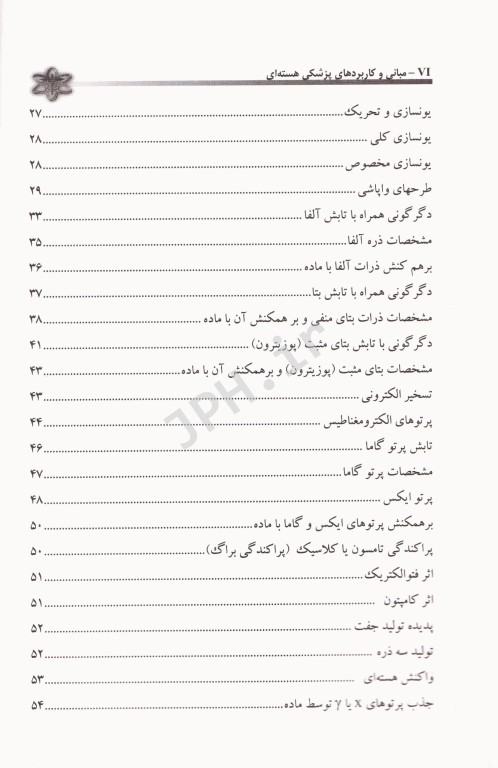 VI – مبانی و کاربردهای پزشکی هسته‌ای
یونسازی و تحریک ........ ۲۷
یونسازی کلی ........ ۲۸
یونسازی مخصوص ........ ۲۸
طرحهای واپاشی ........ ۲۹
دگرگونی همراه با تابش آلفا ........ ۳۳
مشخصات ذره آلفا ........ ۳۵
برهم کنش ذرات آلفا با ماده ........ ۳۶
دگرگونی همراه با تابش بتا ........ ۳۷
مشخصات ذرات بتای منفی و بر همکنش آن با ماده ........ ۳۸
دگرگونی با تابش بتای مثبت (پوزیترون) ........ ۴۱
مشخصات بتای مثبت (پوزیترون) و برهمکنش آن با ماده ........ ۴۳
تسخیر الکترونی ........ ۴۳
پرتوهای الکترومغناطیس ........ ۴۴
تابش پرتو گاما ........ ۴۶
مشخصات پرتو گاما ........ ۴۷
پرتو ایکس ........ ۴۸
برهمکنش پرتوهای ایکس و گاما با ماده ........ ۵۰
پراکندگی تامسون یا کلاسیک (پراکندگی براگ) ........ ۵۰
اثر فتوالکتریک ........ ۵۱
اثر کامپتون ........ ۵۱
پدیده تولید جفت ........ ۵۲
تولید سه ذره ........ ۵۲
واکنش هسته‌ای ........ ۵۳
جذب پرتوهای x یا γ توسط ماده ........ ۵۴
JPH.ir